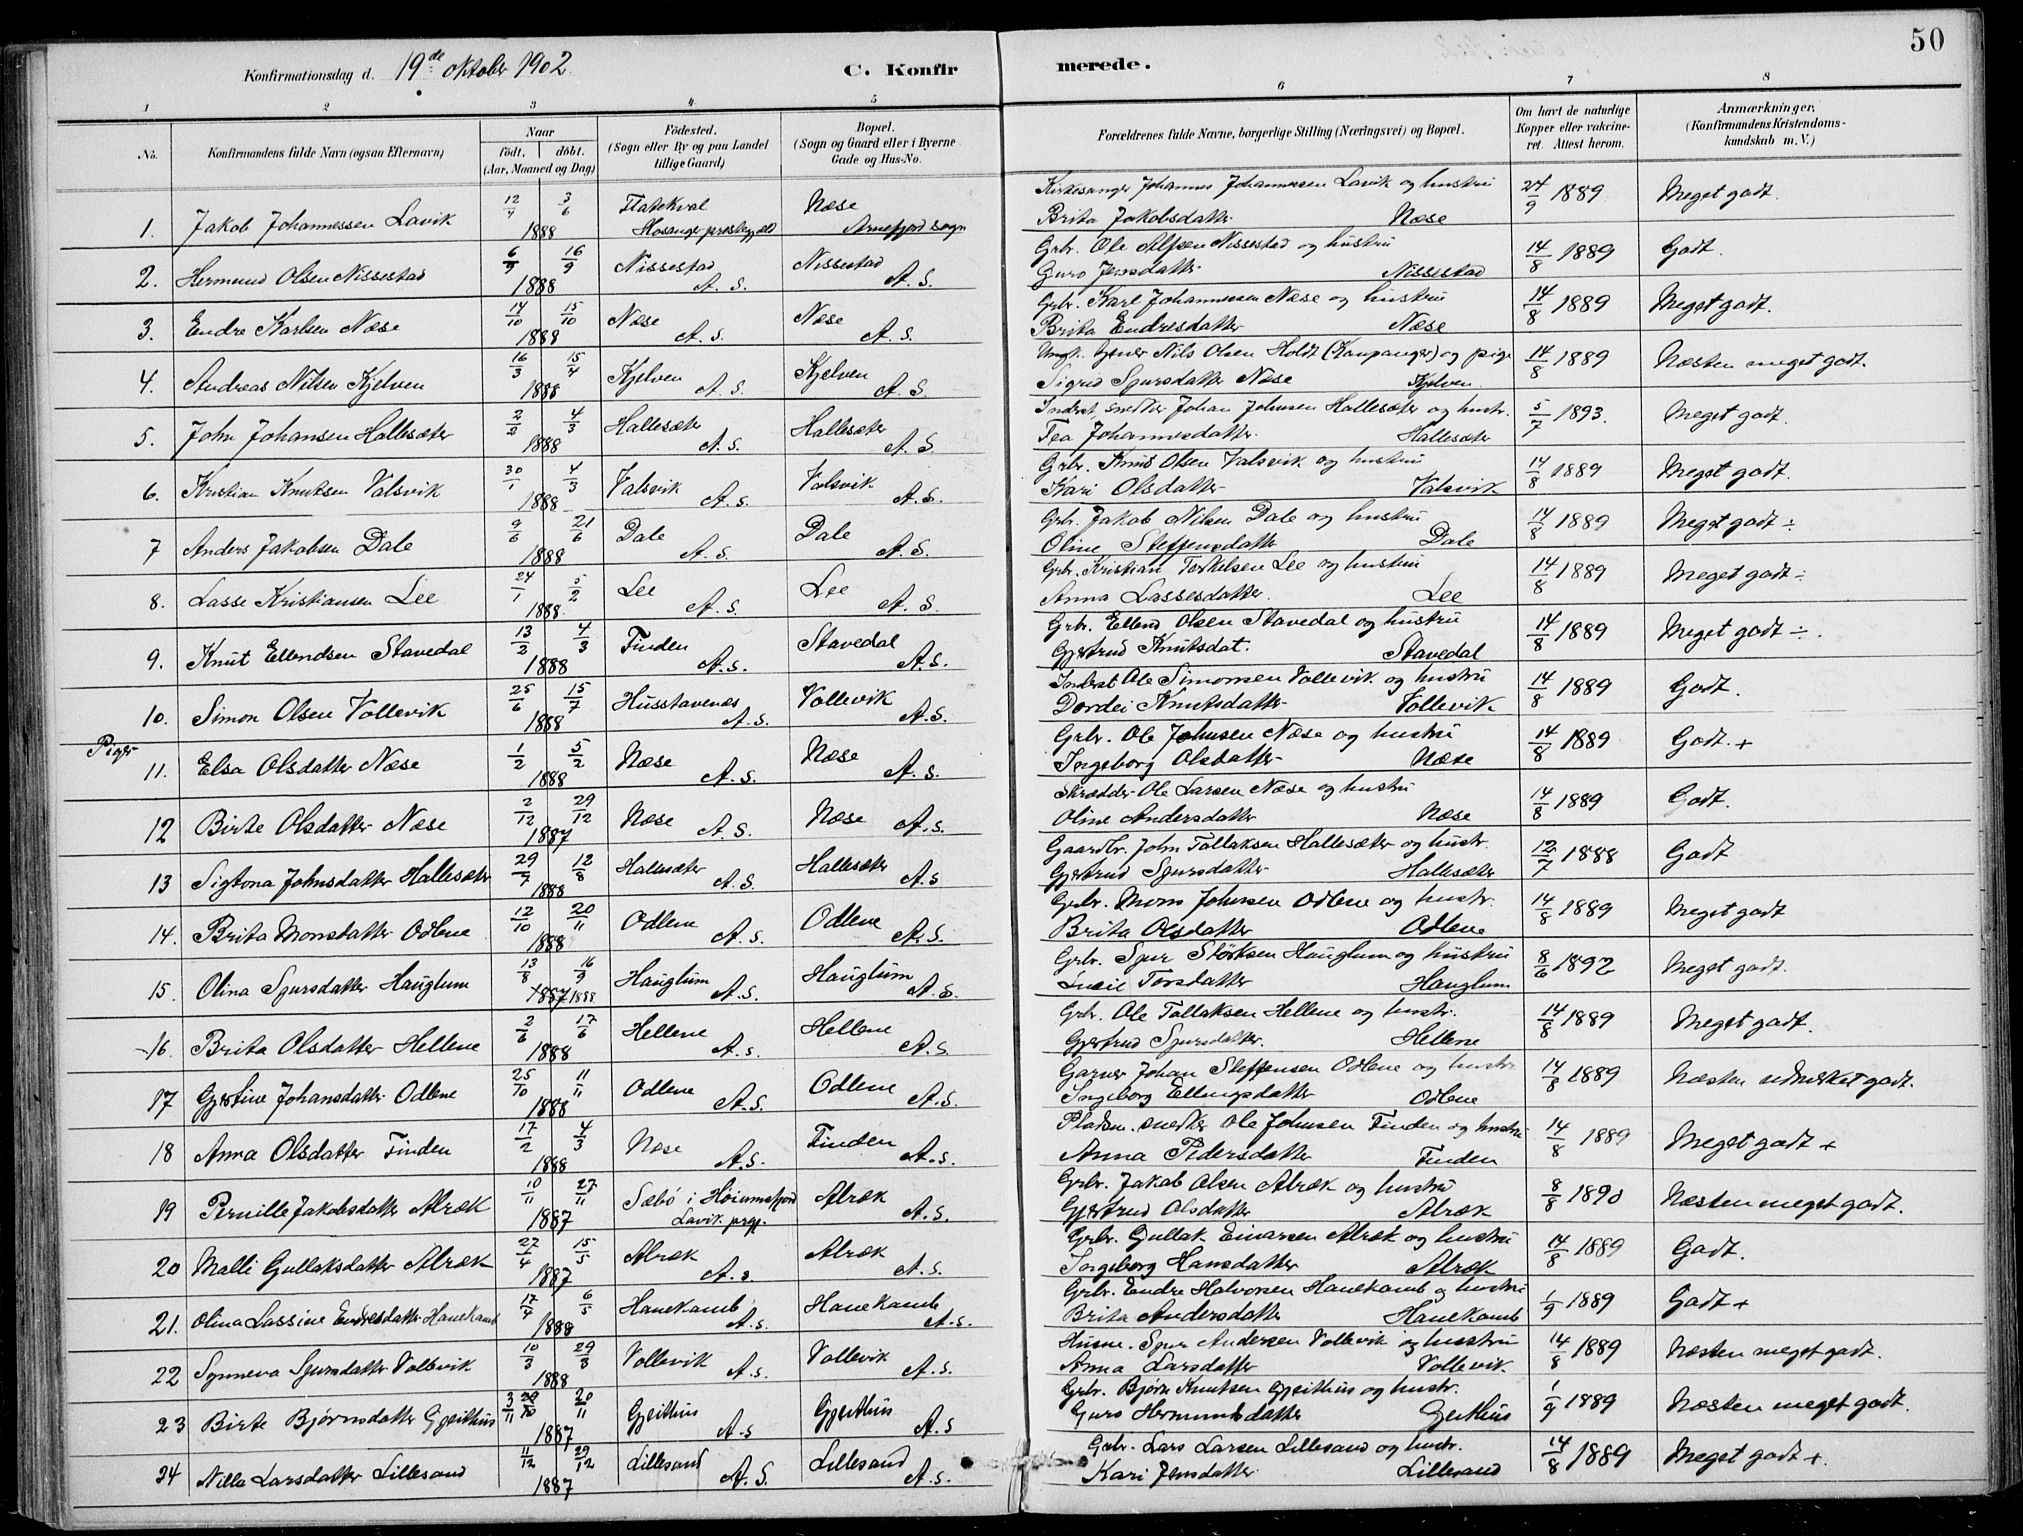 50
Konfirmationsdag d. 19de oktober 1902. C. Konfirmerede.
1 2 3 4 5 6 7 8
No. Konfirmandens fulde Navn (ogsaa Efternavn) Naar födt. döbt. (Aar, Maaned og Dag) Födested. (Sogn eller By og paa Landet tillige Gaard) Bopæl. (Sogn og Gaard eller i Byerne Gade og Hus-No. Forældrenes fulde Navne, borgerlige Stilling (Næringsvei) og Bopæl. Om havt de naturlige Kopper eller vakcineret. Attest herom. Anmærkninger. (Konfirmandens Kristendomskundskab m. V.)
1. Jakob Johannessen Lavik 12/4 3/6 1888 Flatekval Hosanger præstegjæld Næse Arnefjord sogn Kirkesanger Johannes Johannessen Lavik og hustru Brita Jakobsdatter Næse 24/9 1889 Meget godt.
2. Hermund Olsen Nissestad 6/9 16/9 1888 Nissestad A. S. Nissestad A. S. Grbr. Ole Alfsen Nissestad og hustru Guro Jensdatter Nissestad 14/8 1889 Godt.
3. Endre Karlsen Næse 14/10 15/10 1888 Næse A. S. Næse A. S. Grbr. Karl Johannessen Næse og hustru Brita Endresdatter Næse 14/8 1889 Meget godt.
4. Andreas Nilsen Kjelven 16/3 15/4 1888 Kjelven A. S. Kjelven A. S. Ungk. Nils Olsen Holdt (Kaupanger) og pige Sigrid Sjursdatter Næse Kjelven. 14/8 1889 Næsten meget godt.
5. John Johansen Hallesæter 2/2 4/3 1888 Hallesæter A. S. Hallesæter A. S Inderst, snedker Johan Johnsen Hallesæter og hustr. Tea Johannesdatter. Hallesæter 5/7 1893. Meget godt.
6. Kristian Knutsen Valsvik 30/1 4/3 1888 Valsvik A. S. Valsvik A. S. Grbr. Knut Olsen Valsvik og hustru Kari Olsdatter Valsvik 14/8 1889 Meget godt.
7 Anders Jakobsen Dale 9/6 21/6 1888 Dale A. S. Dale A. S. Grbr. Jakob Nilsen Dale og hustru Oline Steffensdatter Dale 14/8 1889 Meget godt ÷
8. Lasse Kristiansen Lee 24/1 5/2 1888. Lee A. S. Lee A. S. Grbr. Kristian Torkelsen Lee og hustru Anna Lassesdatter. Lee 14/8 1889 Meget godt ÷
9. Knut Ellendsen Stavedal 13/2 4/3 1888 Finden A. S. Stavedal A. S. Grbr. Ellend Olsen Stavedal og hustru Gjertrud Knutsdat. Stavedal 14/8 1889 Meget godt ÷.
10. Simon Olsen Vollevik 25/6 15/7 1888 Husstavenes A. S. Vollevik A. S. Inderst Ole Simonsen Vollevik og hustru Dordei Knutsdatter Vollevik 14/8 1889 Godt.
Piger
11. Elsa Olsdatter Næse 1/2 5/2 1888 Næse A. S. Næse A. S. Grbr. Ole Johnsen Næse og hustru Ingeborg Olsdatter Næse 14/8 1889 Godt. +
12 Birte Olsdatter Næse 2/12 29/12 1887 Næse A. S. Næse A. S. Skrædder Ole Larsen Næse og hustru Oline Andersdatter Næse 14/8 1889 Godt.
13 Sigtona Johnsdatter Hallesæter 29/7 12/8 1888 Hallesæter A. S. Hallesæter A. S Gaardbr. John Tollaksen Hallesæter og hustr. Gjertrud Sjursdatter Hallesæter 12/7 1888 Godt
14. Brita Monsdatter Odlene 12/10 20/11 1888 Odlene A. S. Odlene A. S. Grbr. Mons Johnsen Odlene og hustr. Brita Olsdatter Odlene 14/8 1889 Meget godt
15. Olina Sjursdatter Hauglum 13/8 16/9 1887 1888 Hauglum A. S. Hauglum A. S. Grbr. Sjur Størksen Hauglum og hustru Torsdatter Hauglum 8/6 1892 Meget godt.
16. Brita Olsdatter Hellene 2/6 17/6 1888 Hellene A. S. Hellene A. S Grbr. Ole Tollaksen Hellene og hustr. Gjertrud Sjursdatter. Hellene 14/8 1889 Meget godt.
17 Gjertine Johansdatter Odlene 25/10 11/11 1888 Odlene A. S. Odlene A. S. Garver Johan Steffensen Odlene og hustr. Ingeborg Ellingsdatter Odlene 14/8 1889 Næsten udmerket godt.
18 Anna Olsdatter Finden 17/2 4/3 1888 Næse A. S. Finden A. S. Pladsm. snedker Ole Johnsen Finden og hustru Anna Pedersdatter Finden 14/8 1889 Meget godt +
19 Pernille Jakobsdatter Alræk 10/11 27/11 1887 Sæbö i Höiumsfjord Lavik prgj. Alræk A. S. Grbr. Jakob Olsen Alræk og hustru Gjertrud Olsdatter Alræk 8/8 1890 Næsten meget godt.
20 Malli Gullaksdatter Alræk 27/4 15/5 1887 Alræk A. S. Alræk A. S. Grbr. Gullak Einarsen Alræk og hustru Ingeborg Hansdatter Alræk 14/8 1889 Godt.
21. Olina Lassine Endresdatter Hanekamb 17/4 6/5 1888 Hanekamb A. S. Hanekamb A. S. Grbr. Endre Halvorsen Hanekamb og hustru Brita Andersdatter Hanekamb 1/9 1889 Godt +
22 Synneva Sjursdatter Vollevik 10/3 29/3 1888 Vollevik A. S. Vollevik A. S. Husm. Sjur Andersen Vollevik og hustru Anna Larsdatter Vollevik. 14/8 1889 Næsten meget godt.
23 Birte Bjørnsdatter Gjeithus 3/11 29/10 20/11 1887 Gjeithus A. S Gjeithus A. S Grbr. Bjørn Knutsen Gjeithus og hustr. Guro Hermundsdatter Geithus 1/9 1889 Næsten meget godt.
24 Nilla Larsdatter Lillesand 11/12 29/12 1887 Lillesand A. S. Lillesand A. S. Grbr. Lars Larsen Lillesand og hustr. Kari Jensdatter Lillesand 14/8 1889 Meget godt +.